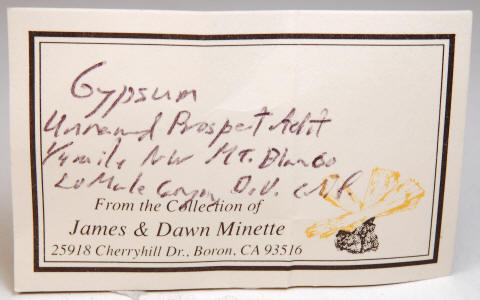 Gypsum
Unnamed Prospect Adit
1/4 mile NW Mt. Blanco
20 Mule Canyon D.V.
From the Collection of
James & Dawn Minette
25918 Cherryhill Dr., Boron, CA 93516